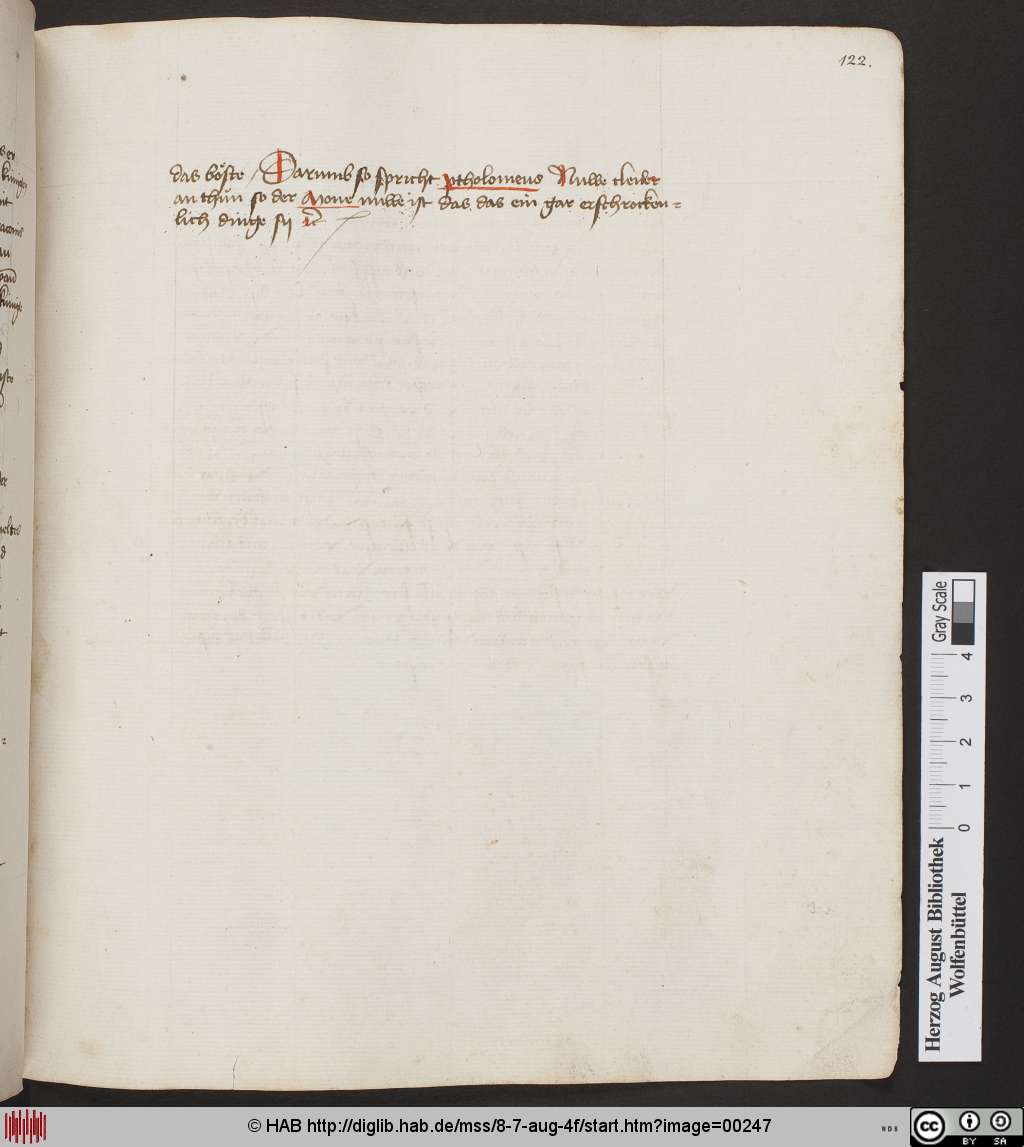 122.
das böste / Darumb so spricht ptholomeus Nuwe cleider
an thůn so der Mone nuwe ist das das ein gar erschrocken=
lich dinge sy ꝛc
Gray Scale
4
3
2
1
0
Herzog August Bibliothek
Wolfenbüttel
© HAB http://diglib.hab.de/mss/8-7-aug-4f/start.htm?image=00247
WDB
cc BY SA